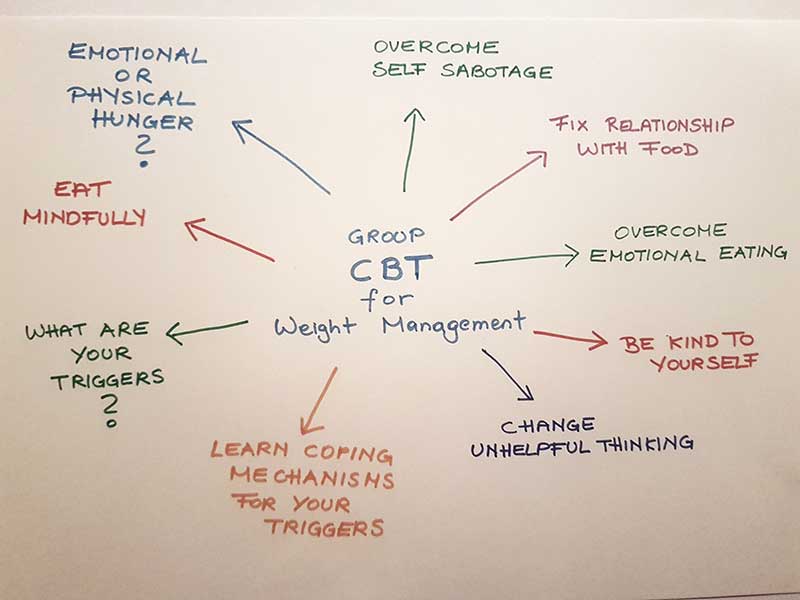 EMOTIONAL
OR
PHYSICAL
HUNGER
?
OVERCOME
SELF SABOTAGE
FIX RELATIONSHIP
WITH FOOD
EAT
MINDFULLY
GROUP
CBT
for
Weight Management
OVERCOME
EMOTIONAL EATING
WHAT ARE
YOUR
TRIGGERS
?
BE KIND TO
YOURSELF
LEARN COPING
MECHANISMS
FOR YOUR
TRIGGERS
CHANGE
UNHELPFUL THINKING